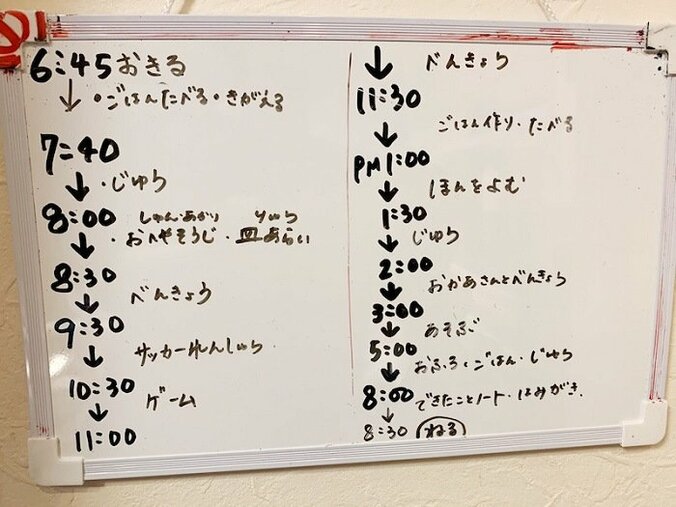 6:45 おきる
↓ ・ごはんたべる・きがえる
7:40
↓ ・じゆう
8:00 しゅん・あかり りゅう
↓ ・おへやそうじ・皿あらい
8:30
↓ べんきょう
9:30
↓ サッカーれんしゅう
10:30
↓ ゲーム
11:00
↓ べんきょう
11:30
↓ ごはん作り・たべる
PM 1:00
↓ ほんをよむ
1:30
↓ じゆう
2:00
↓ おかあさんとべんきょう
3:00
↓ あそぶ
5:00
↓ おふろ・ごはん・じゆう
8:00
↓ できたことノート・はみがき.
8:30 ねる